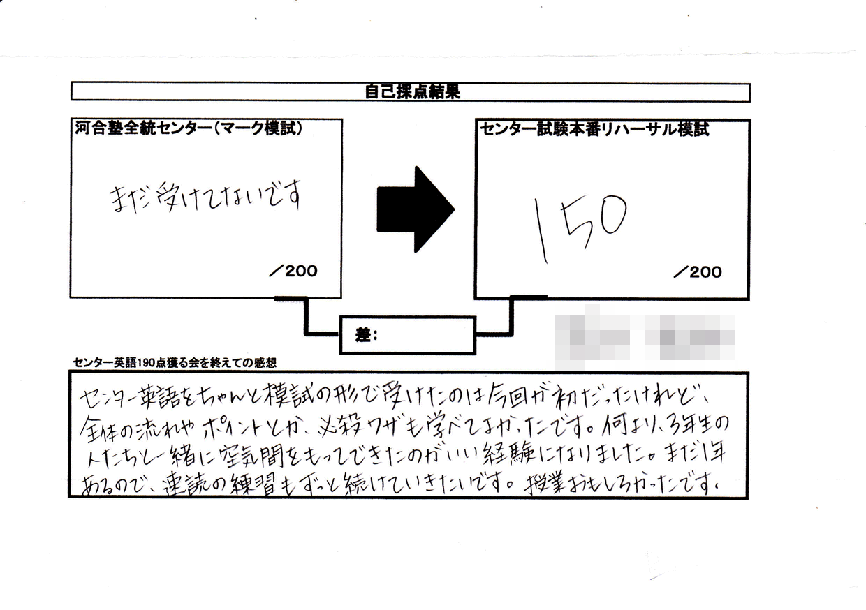 自己採点結果
河合塾全統センター(マーク模試)
まだ受けてないです
／200
センター試験本番リハーサル模試
150
／200
差：
センター英語190点獲る会を終えての感想
センター英語をちゃんと模試の形で受けたのは今回が初だったけれど、
全体の流れやポイントとか、必殺ワザも学べてよかったです。何より、3年生の
人たちと一緒に空気間をもってできたのがいい経験になりました。まだ1年
あるので、速読の練習もずっと続けていきたいです。授業おもしろかったです。